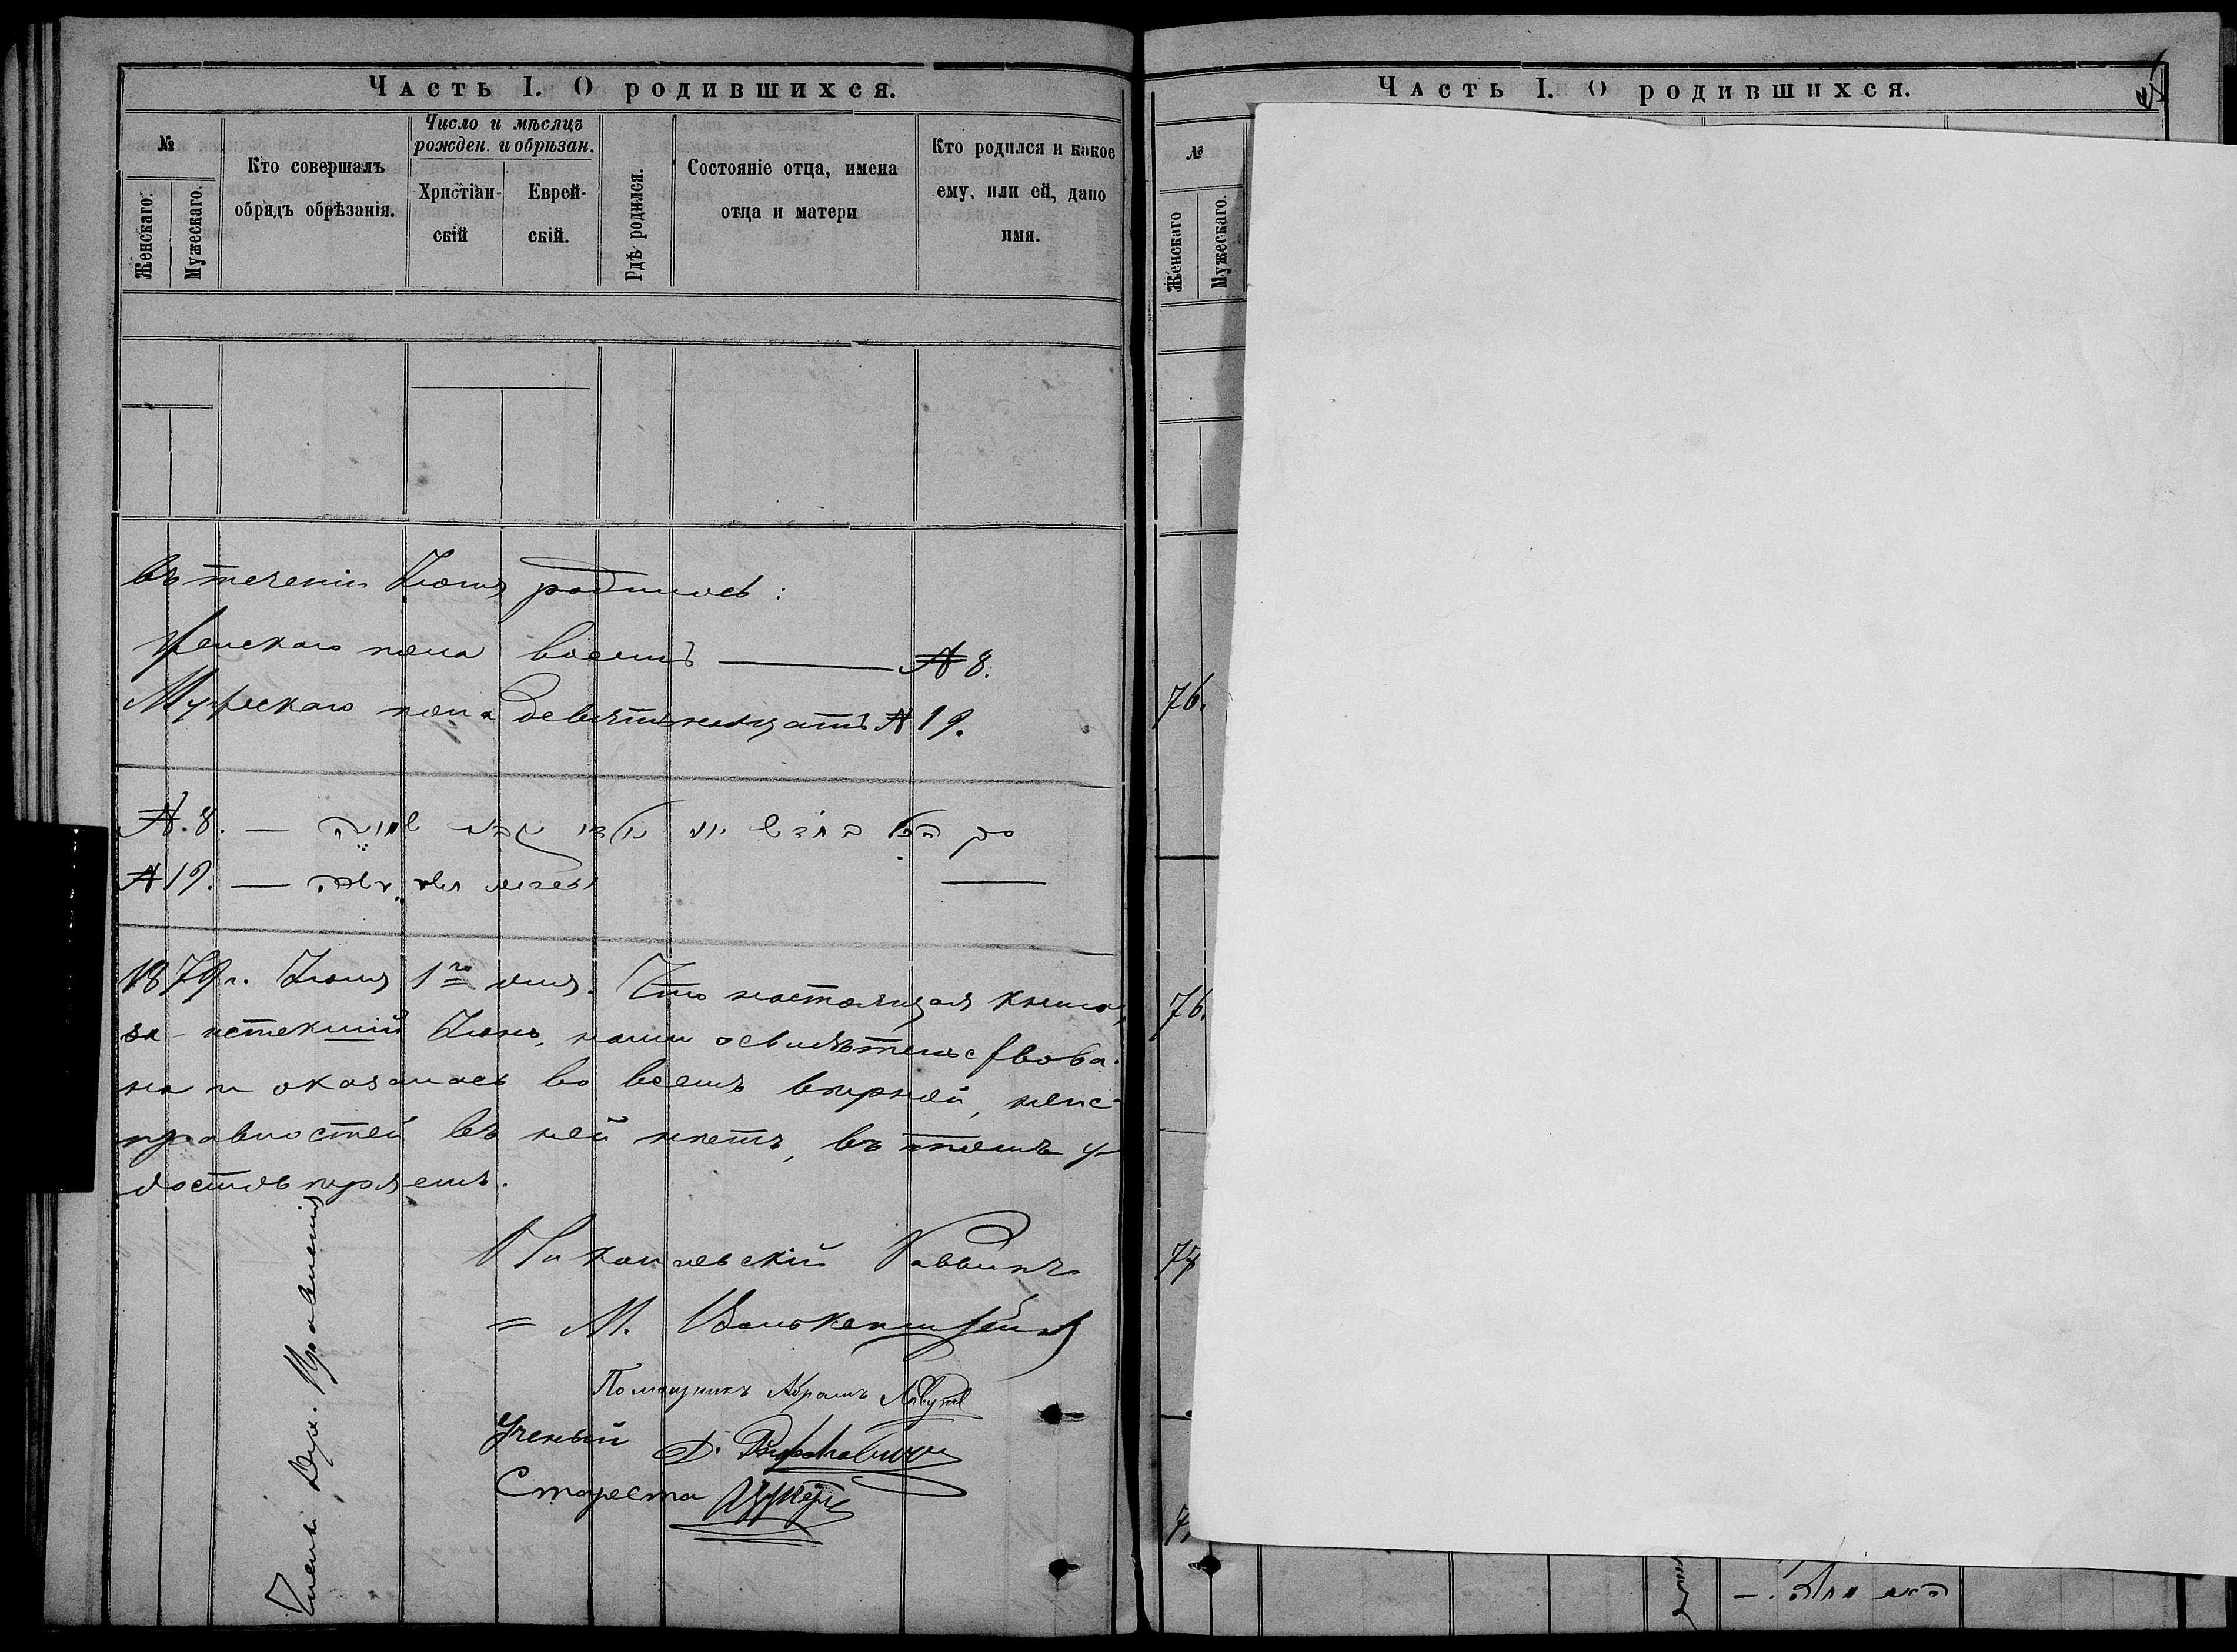 Часть I. О родившихся.
№
Женскаго.
Мужескаго.
Кто совершалъ
обрядъ обрѣзанія.
Число и мѣсяцъ
рожден. и обрѣзан.
Христіан-
скій
Еврей-
скій.
Гдѣ родился.
Состояніе отца, имена
отца и матери
Кто родился и какое
ему, или ей, дано
имя.
Въ теченіи Іюня родилось:
Женскаго пола восемь — № 8.
Мужескаго пола девятьнадцать № 19.
№. 8. —
№ 19. —
1879 г. Іюля 1го дня. Что настоящая книга,
за истекшій Іюнь, нами освидѣтельствова-
на и оказалась во всемъ вѣрной, неис-
правностей въ ней нѣтъ, въ томъ у-
достовѣряемъ.
Николаевскій Раввинъ
= М. Волькенштейнъ
Помощникъ Абрамъ
Ученый
Староста Цукеръ
Члены Дух. Правленія
Часть I. О родившихся.
№
Женскаго
Мужескаго.
76.
76.
77
7